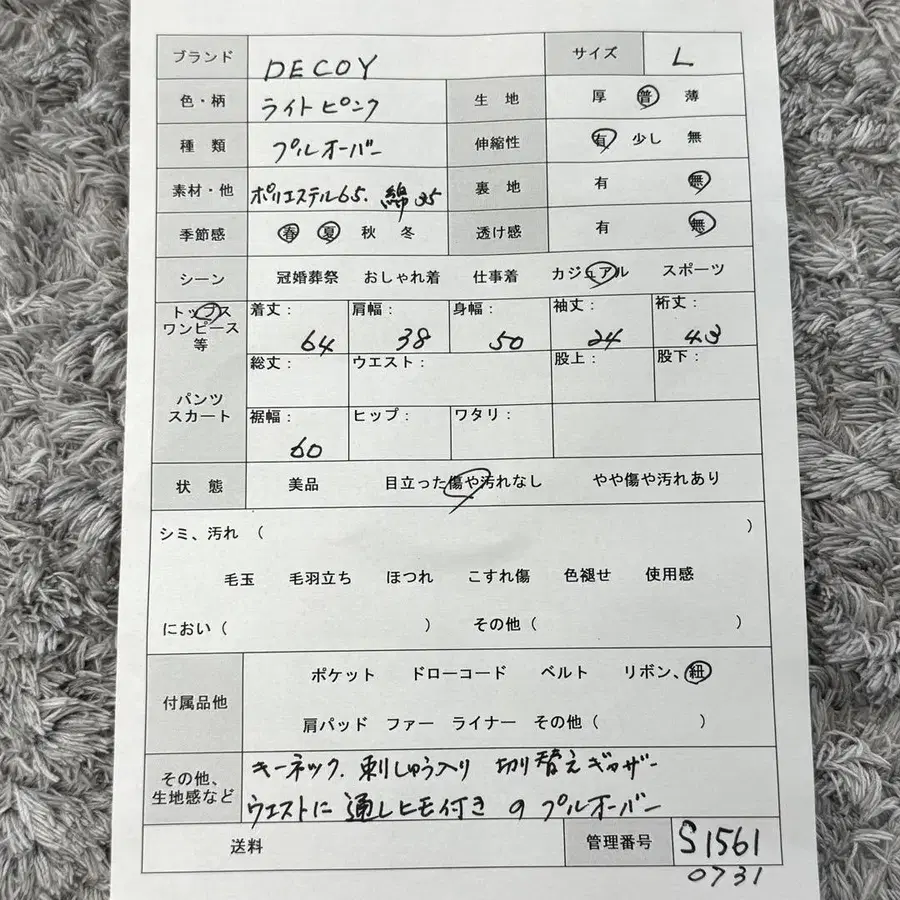 ブランド DECOY サイズ L
色・柄 ライトピンク 生 地 厚 普 薄
種 類 プルオーバー 伸縮性 有 少し 無
素材・他 ポリエステル65. 綿35 裏 地 有 無
季節感 春 夏 秋 冬 透け感 有 無
シーン 冠婚葬祭 おしゃれ着 仕事着 カジュアル スポーツ
トップス
ワンピース
等
着丈: 64 肩幅: 38 身幅: 50 袖丈: 24 裄丈: 43
パンツ
スカート
総丈: ウエスト: 股上: 股下:
裾幅: 60 ヒップ: ワタリ:
状 態 美品 目立った傷や汚れなし やや傷や汚れあり
シミ、汚れ ( )
毛玉 毛羽立ち ほつれ こすれ傷 色褪せ 使用感
におい ( ) その他 ( )
付属品他 ポケット ドローコード ベルト リボン、紐
肩パッド ファー ライナー その他 ( )
その他、
生地感など
キーネック. 刺しゅう入り 切り替えギャザー
ウエストに通しヒモ付き の プルオーバー
送料 管理番号 S1561
0731